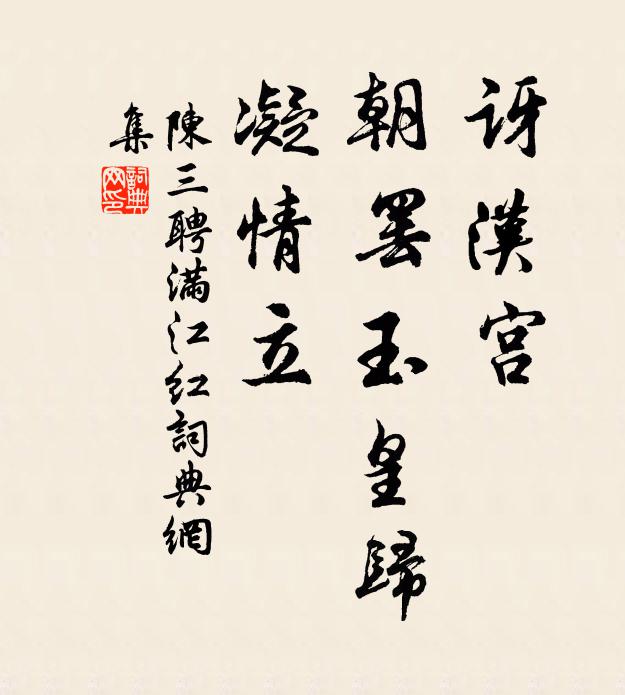 訝漢宮
朝罷玉皇歸
凝情立
陳三聘滿江紅詞典網
集
詞典網印